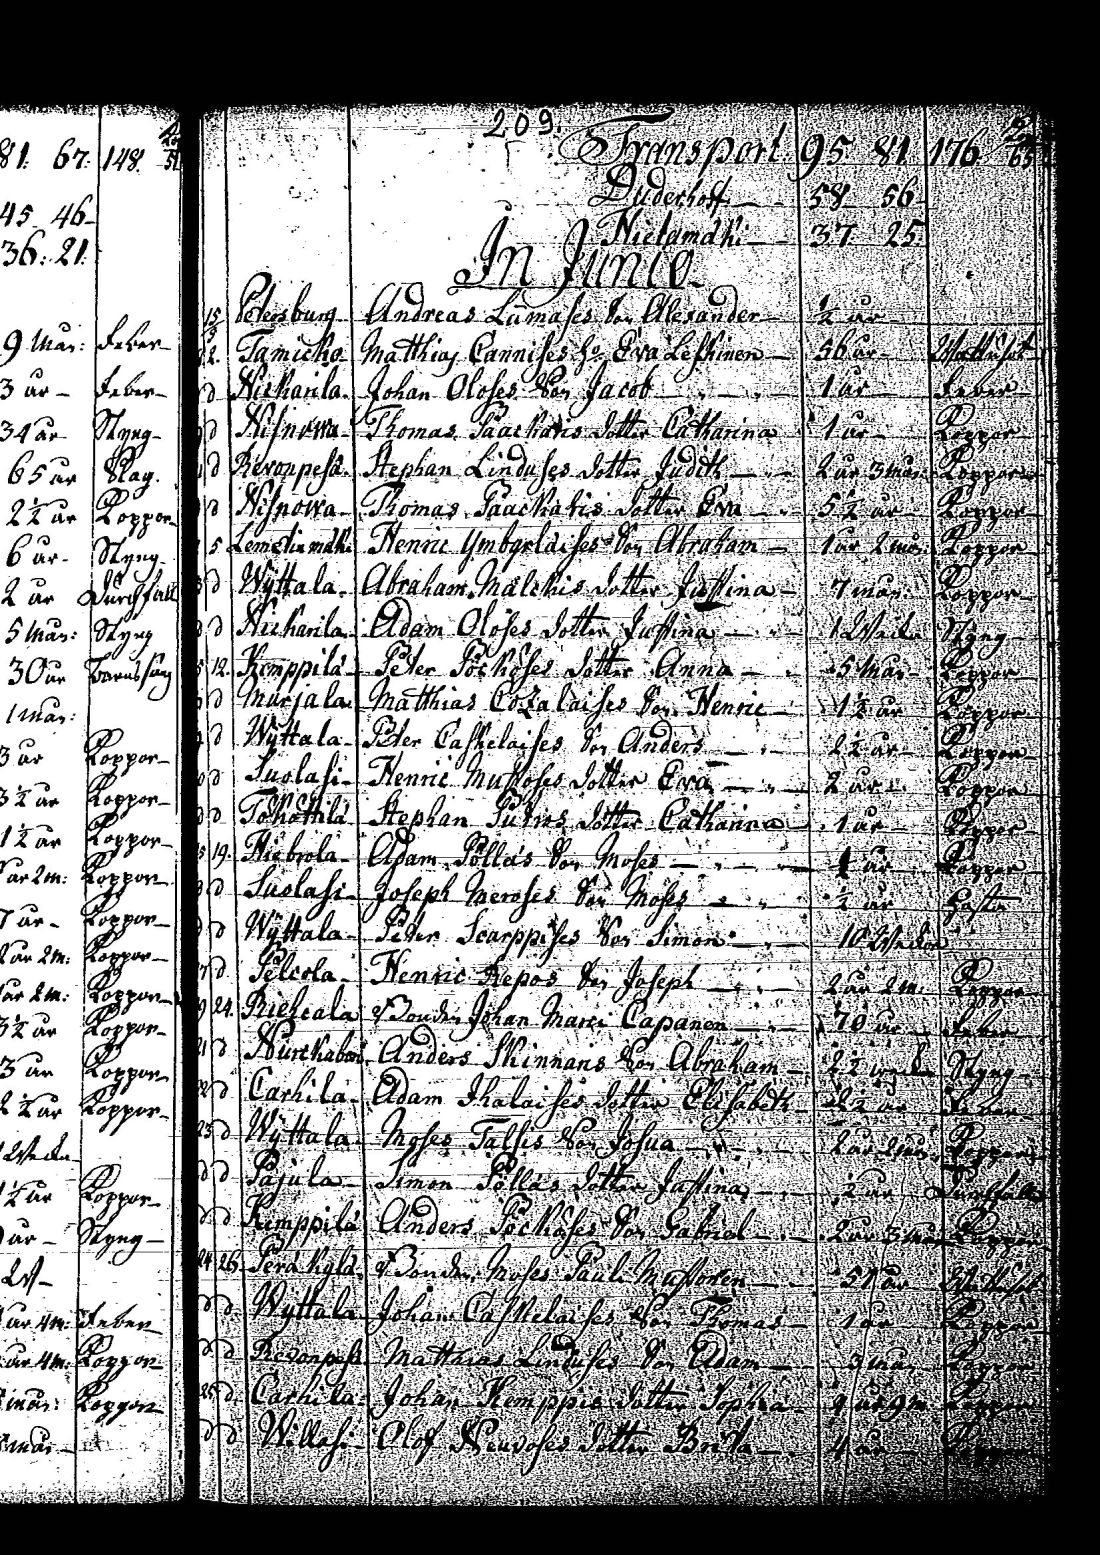 81. 67. 148.
45 46
36. 21.
9 Mån: Feber
3 år Feber
34 år Styng
65 år Slag.
2½ år Koppor
6 år Styng
2 år Durchfall
5 Mån: Styng
30 år Barnsäng
1 mån:
3 år Koppor
3½ år Koppor
1½ år Koppor
år 2m: Koppor
7 år Koppor
år 2m: Koppor
år 2m: Koppor
3½ år Koppor
3 år Koppor
2½ år Koppor
Wecka
½ år Koppor
år Styng
W
år 4m: Feber
år 4m: Koppor
mån: Koppor
mån
209.
Transport. 95 81 176
Duderhoff 58 56
Hietamäki 37 25.
In Junio
15 Petersburg Andreas Lumases Son Alexander ½ år
Tamicko Matthias Cannises H: Eva Leskinen 56 år
d Nicharila Johan Oloses Son Jacob 1 år Feber
d Nisnowa Thomas Paackaris Dotter Catharina 1 år Koppor
d Revonpesä Stephan Linduses Dotter Judith 2 år 3 mån Koppor
d Nisnowa Thomas Paackaris Dotter Eva 5½ år Koppor
5 Lemetinmäki Henric Ymbyrlaises Son Abraham 1 år 2 mån: Koppor
d Wyttala Abraham Malckis Dotter Justina 7 mån: Koppor
d d Nicharila Adam Oloses Dotter Justina 1 Wecka Styng
12. Kemppilä Peter Pöcköses Dotter Anna 5 Mån Koppor
d Murjala Matthias Cozalaises Son Henric 1½ år Koppor
d Wyttala Peter Caskelaises Son Anders 2½ år Koppor
d Suolasi Henric Mustoses Dotter Eva 2 år Koppor
d d Tohottila Stephan Putros Dotter Catharina 1 år Koppor
19. Hiebrola Adam Pölläs Son Moses år Koppor
d Suolasi Joseph Meroses Son Moses ½ år Hosta
d d Wyttala Peter Scarppises Son Simon 10 Weckor
d Pelcola Henric Repos Son Joseph 2 år 2m. Koppor
24. Rieheala Bonden Johan Marci Capanen 70 år Feber
21 d Nurckabas Anders Skinnaris Son Abraham 2½ Styng
22 d Carhila Adam Ihalaises Dotter Elisabeth 2½ år Feber
23 d Wyttala Moses Tallis Son Josua 2 år 2 mån Koppor
d d Pajula Simon Pölläs Dotter Justina ½ år Durchfall
d d Kemppilä Anders Pöcköses Son Gabriel 2 år 3 mån Koppor
24 26. Peräkylä Bonden Moses Pauli Mustonen 51 år
d d. Wyttala Johan Caskelaises Son Thomas 1 år Koppor
d d Revonpesä Matthias Linduses Son Adam 3 mån Koppor
25 d. Carhila Johan Kemppis Dotter Sophia 9 år 9m Koppor
d d Willasi Olof Neuvoses Dotter Brita 4 år Koppor